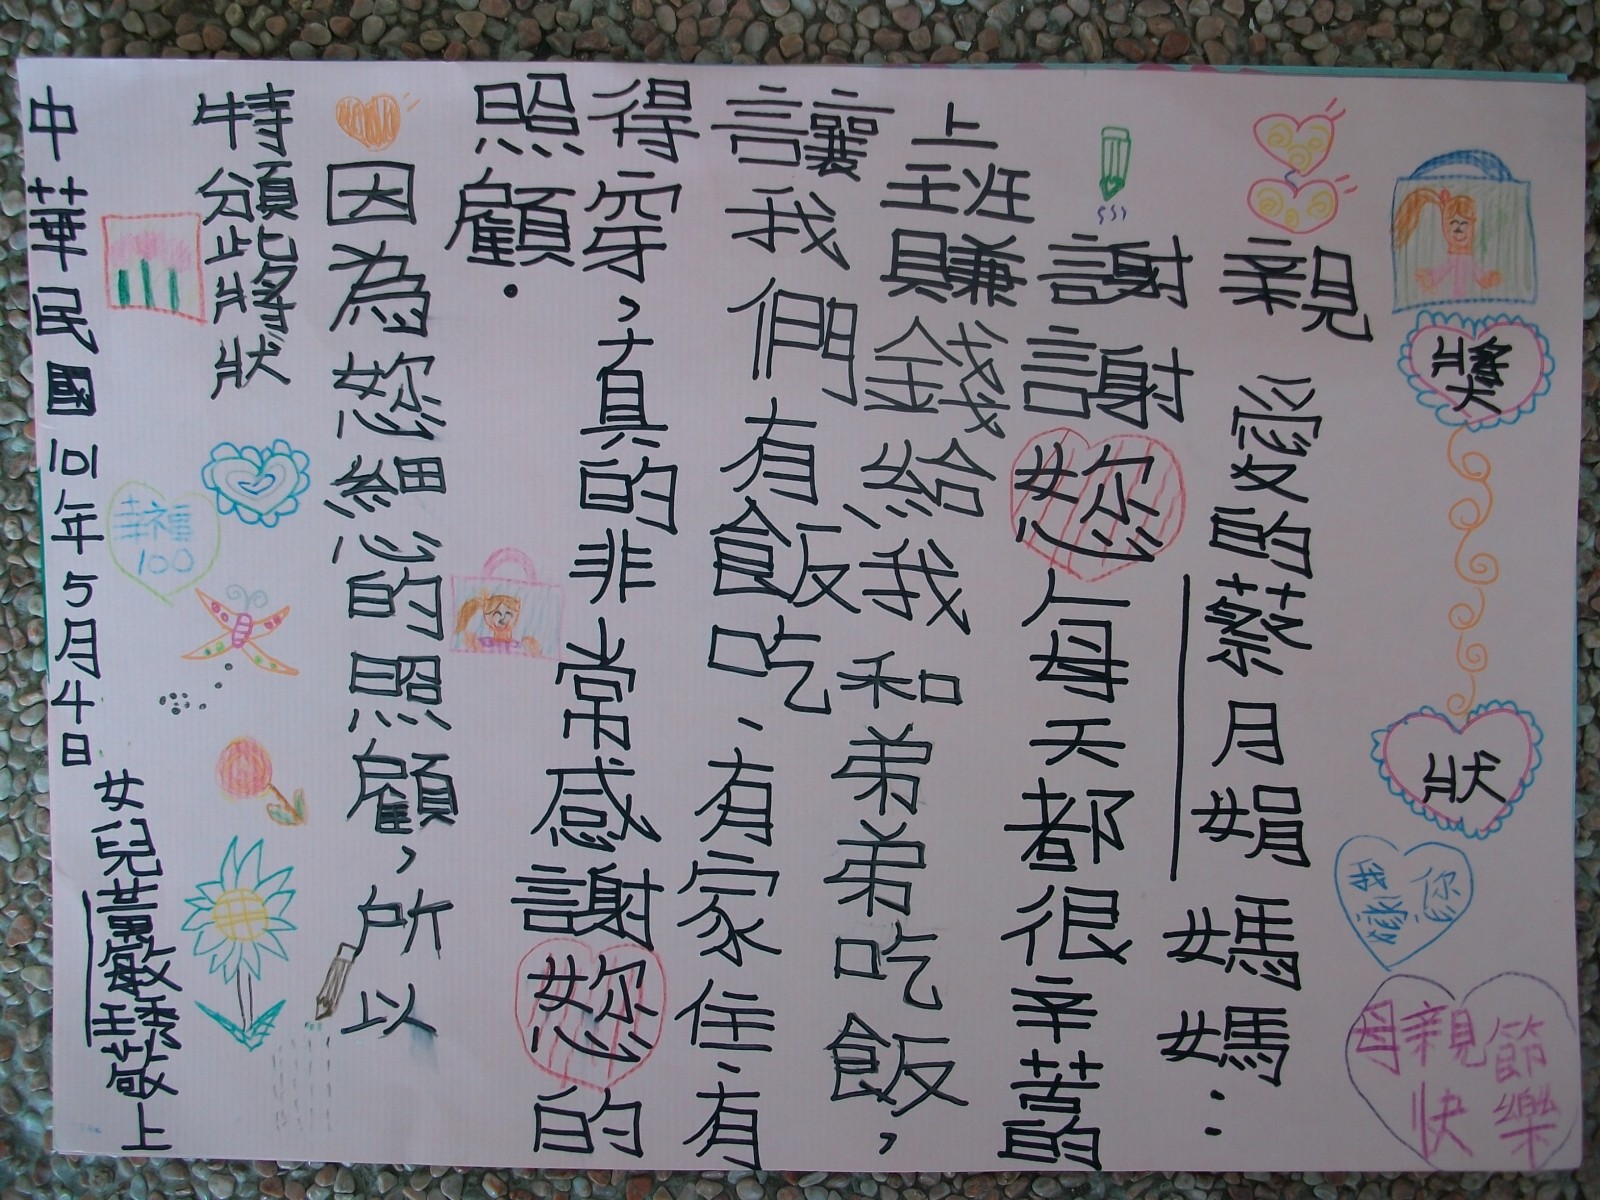 獎狀
我愛你
母親節
快樂
親愛的蔡月娟媽媽：
謝謝您每天都很辛苦的
上班賺錢給我和弟弟吃飯，
讓我們有飯吃、有家住、有
得穿，真的非常感謝您的
照顧．
因為您細心的照顧，所以
特頒此將狀
幸福
100
中華民國101年5月4日
女兒黃敏琇敬上